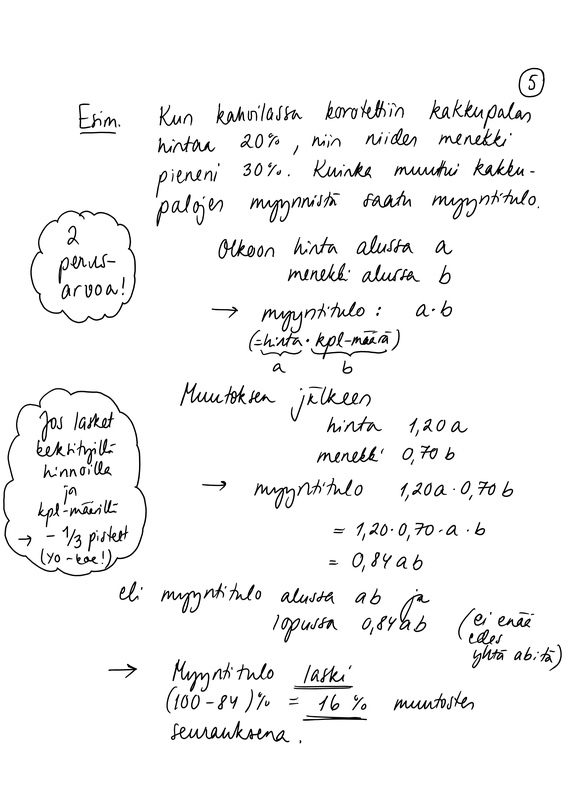 5
Esim. Kun kahvilassa korotettiin kakkupalan
hintaa 20%, niin niiden menekki
pieneni 30%. Kuinka muuttui kakku-
palojen myynnistä saatu myyntitulo.
2
perus-
arvoa!
Olkoon hinta alussa a
menekki alussa b
→ myyntitulo: a·b
(=hinta · kpl-määrä)
a b
Muutoksen jälkeen
hinta 1,20a
menekki 0,70b
Jos lasket
keksityillä
hinnoilla
ja
kpl-määrillä
→ -1/3 pisteet
(yo-koe!)
→ myyntitulo 1,20a·0,70b
= 1,20·0,70·a·b
= 0,84ab
eli myyntitulo alussa ab ja
lopussa 0,84ab
(ei enää
edes
yhtä abitä)
→ Myyntitulo laski
(100-84)% = 16 % muutosten
seurauksena.